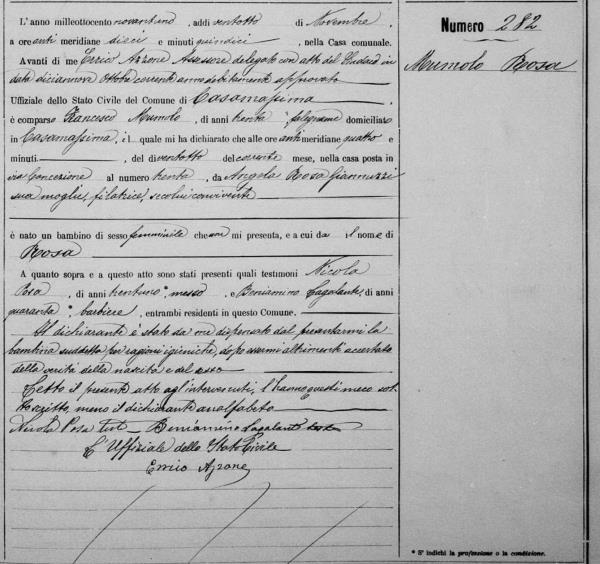 L'anno milleottocento novantuno, addì ventotto di Novembre,
a ore anti meridiane dieci e minuti quindici, nella Casa comunale.
Avanti di me Errico Azzone Assessore delegato con atto del Sindaco in
data diciannove Ottobre corrente anno debitamente approvato
Uffiziale dello Stato Civile del Comune di Casamassima
è comparso Francesco Mumolo, di anni trenta, falegname domiciliato
in Casamassima, il quale mi ha dichiarato che alle ore anti meridiane quattro e
minuti, del dì ventotto del corrente mese, nella casa posta in
via Concezione al numero trenta, da Angela Rosa Giannuzzi
sua moglie, filatrice, seco lui convivente
è nato un bambino di sesso femminile che non mi presenta, e a cui dà il nome di
Rosa
A quanto sopra e a questo atto sono stati presenti quali testimoni Nicola
Posa, di anni trentuno*, messo, e Beniamino Lagalante, di anni
quaranta*, barbiere, entrambi residenti in questo Comune.
Il dichiarante è stato da me dispensato dal presentarmi la
bambina suddetta per ragioni igieniche, dopo essermi altrimenti accertato
della verità della nascita e del sesso
Letto il presente atto agl'intervenuti, l'hanno questi meco sot-
toscritto, meno il dichiarante analfabeto
Nicola Posa test - Beniamino Lagalante
L'Uffiziale dello Stato Civile
Errico Azzone
Numero 282
Mumolo Rosa
* S' indichi la professione o la condizione.